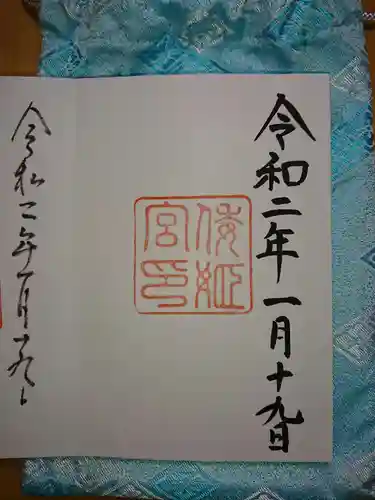 令和二年一月十九日
倭姫
宮印
令和二年一月十九日